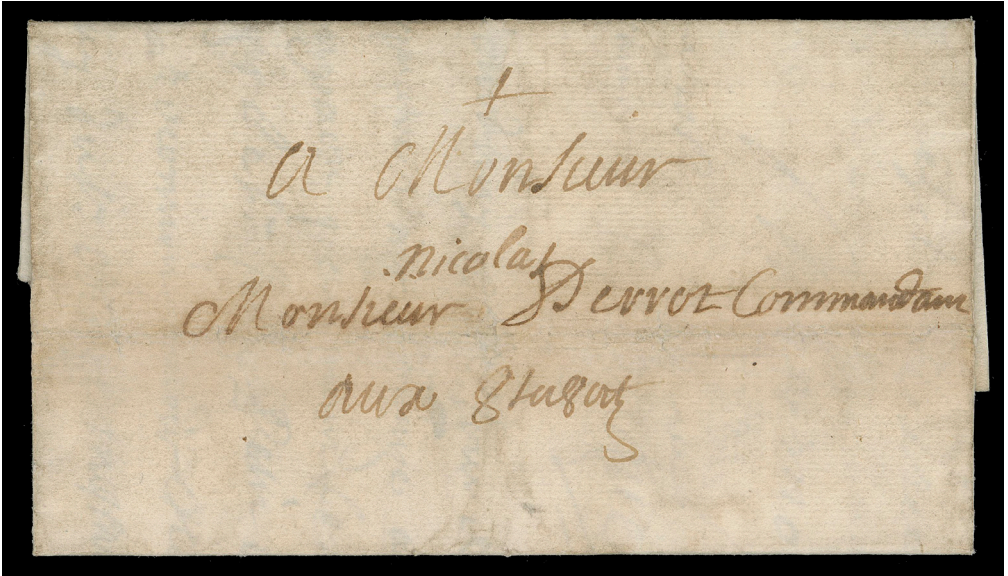 A Monsieur
nicolas
Monsieur Perrot Commandant
aux